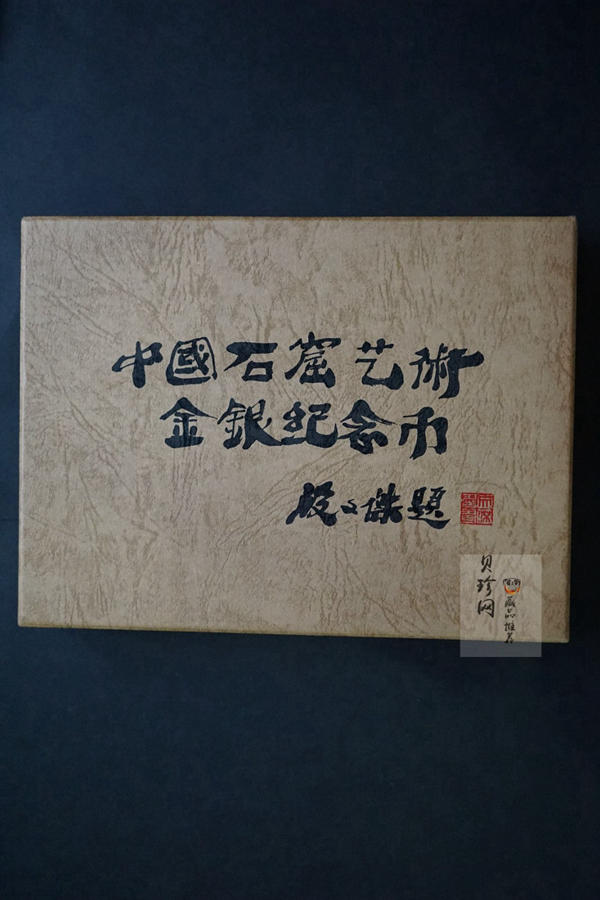 中國石窟艺術
金銀纪念币
段文傑題
贝珍网
藏品推荐